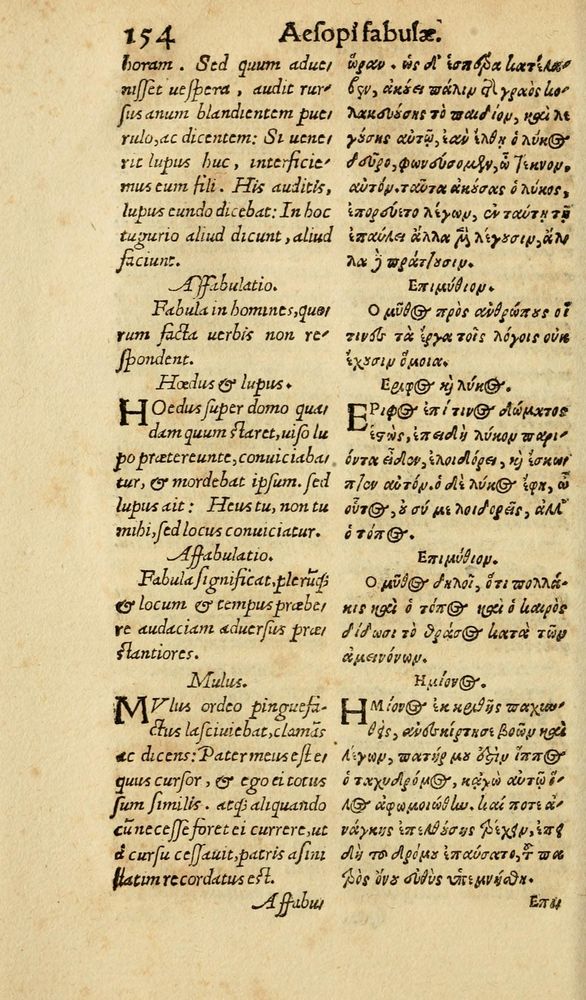 154 Aesopi fabulæ.
horam. Sed quum adue⸗
nisset uespera, audit rur⸗
sus anum blandientem pue
rulo, ac dicentem: Si uene
rit lupus huc, interficie⸗
mus eum fili. His auditis,
lupus eundo dicebat: In hoc
tugurio aliud dicunt, aliud
faciunt.
Affabulatio.
Fabula in homines, quo⸗
rum facta uerbis non re⸗
spondent.
Hœdus & lupus.
HOedus super domo qua⸗
dam quum staret, uiso lu
po prætereunte, conuiciaba⸗
tur, & mordebat ipsum. sed
lupus ait: Heus tu, non tu
mihi, sed locus conuiciatur.
Affabulatio.
Fabula significat, plerunq;
& locum & tempus præbe⸗
re audaciam aduersus præ⸗
stantiores.
Mulus.
MVlus ordeo pinguefa⸗
ctus lasciuiebat, clamãs
ac dicens: Pater meus est e⸗
quus cursor, & ego ei totus
sum similis. atq; aliquando
cũ necesse foret ei currere, ut
à cursu cessauit, patris asini
statim recordatus est.
Affabu⸗
ὥραν. ὡς δ' ἑσπέρα κατέλα⸗
βεν, ἀκούει πάλιν τῆς γραὸς κο⸗
λακευούσης τὸ παιδίον, καὶ λε
γούσης αὐτῷ, ἐὰν ἔλθῃ ὁ λύκος
δεῦρο, φονεύσομεν, ὦ τέκνον,
αὐτόν. ταῦτα ἀκούσας ὁ λύκος,
ἐπορεύετο λέγων, ἐν ταύτῃ τῇ
ἐπαύλει ἄλλα μὲν λέγουσιν, ἄλ⸗
λα δὲ πράττουσιν.
Επιμύθιον.
Ο μῦθος πρὸς ἀνθρώπους οἵ
τινες τὰ ἔργα τοῖς λόγοις οὐκ
ἔχουσιν ὅμοια.
Εριφος καὶ λύκος.
ΕΡιφος ἐπί τινος δώματος
ἑστὼς, ἐπειδὴ λύκον παρι⸗
όντα εἶδεν, ἐλοιδόρει, καὶ ἔσκω⸗
πτεν αὐτόν. ὁ δὲ λύκος ἔφη, ὦ
οὗτος, οὐ σύ με λοιδορεῖς, ἀλλ'
ὁ τόπος.
Επιμύθιον.
Ο μῦθος δηλοῖ, ὅτι πολλά⸗
κις καὶ ὁ τόπος καὶ ὁ καιρὸς
δίδωσι τὸ θράσος κατὰ τῶν
ἀμεινόνων.
Ημίονος.
ΗΜίονος ἐκ κριθῆς παχυν⸗
θεὶς, ἀνεσκίρτησε βοῶν καὶ
λέγων, πατήρ μου ἐστὶν ἵππος
ὁ ταχυδρόμος, κᾀγὼ αὐτῷ ὅ⸗
λος ἀφωμοιώθην. καί ποτε ἀ⸗
νάγκης ἐπελθούσης τρέχειν, ἐπει
δὴ τοῦ δρόμου ἐπαύσατο, τοῦ πα
τρὸς ὄνου εὐθὺς ὑπεμνήσθη.
Επι⸗